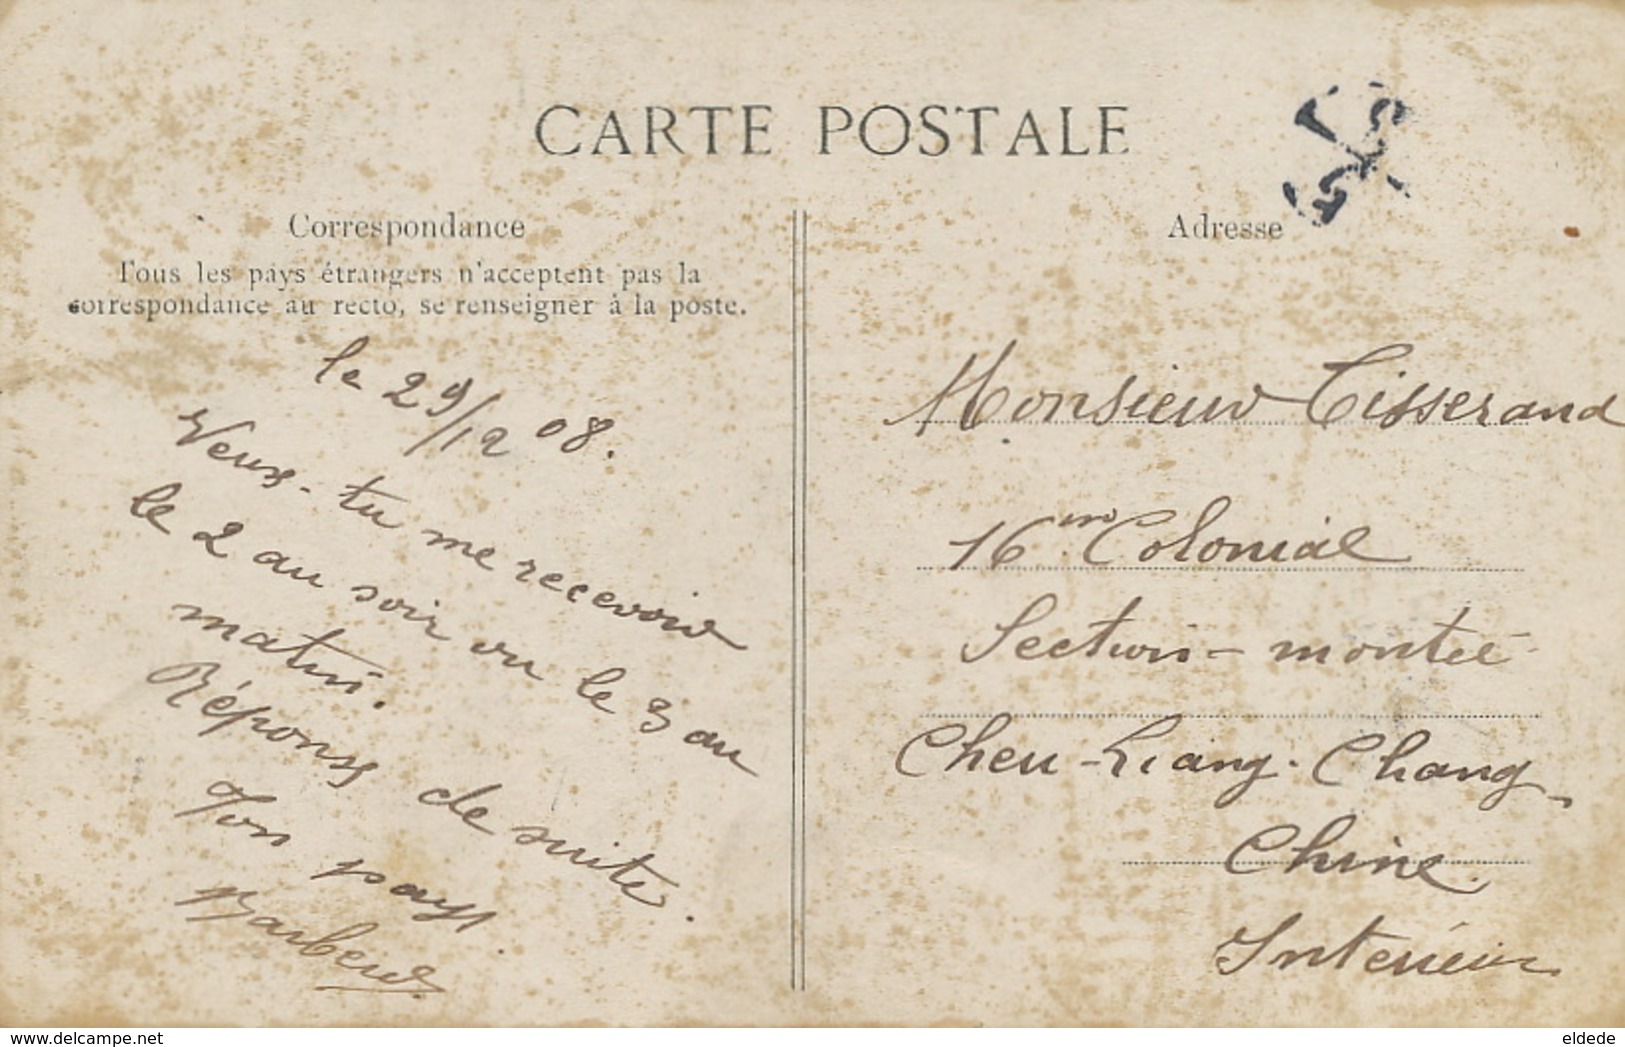 CARTE POSTALE
Correspondance
Tous les pays étrangers n'acceptent pas la
correspondance au recto, se renseigner à la poste.
le 29/12 08.
Veux-tu me recevoir
le 2 au soir ou le 3 au
matin.
Réponse de suite.
Ton pays
Adresse
Monsieur Tisserand
16me Colonial
Section-montée
Cheu-Liang-Chang-
Chine
Intérieur
www.delcampe.net
eldede